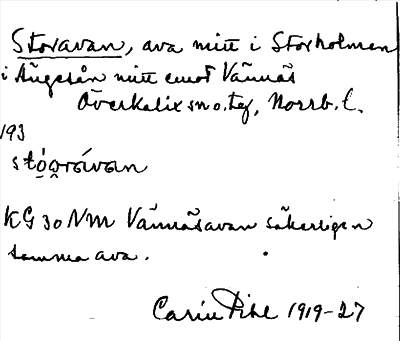 Storavan, ava mitt i Storholmen
i Ängesån mitt emot Vännäs
Överkalix sn o. tg, Norrb. l.
193
stó̠ərávan
KG 30 NM Vännäsavan säkerligen
samma ava.
Carin Pihl 1919-27